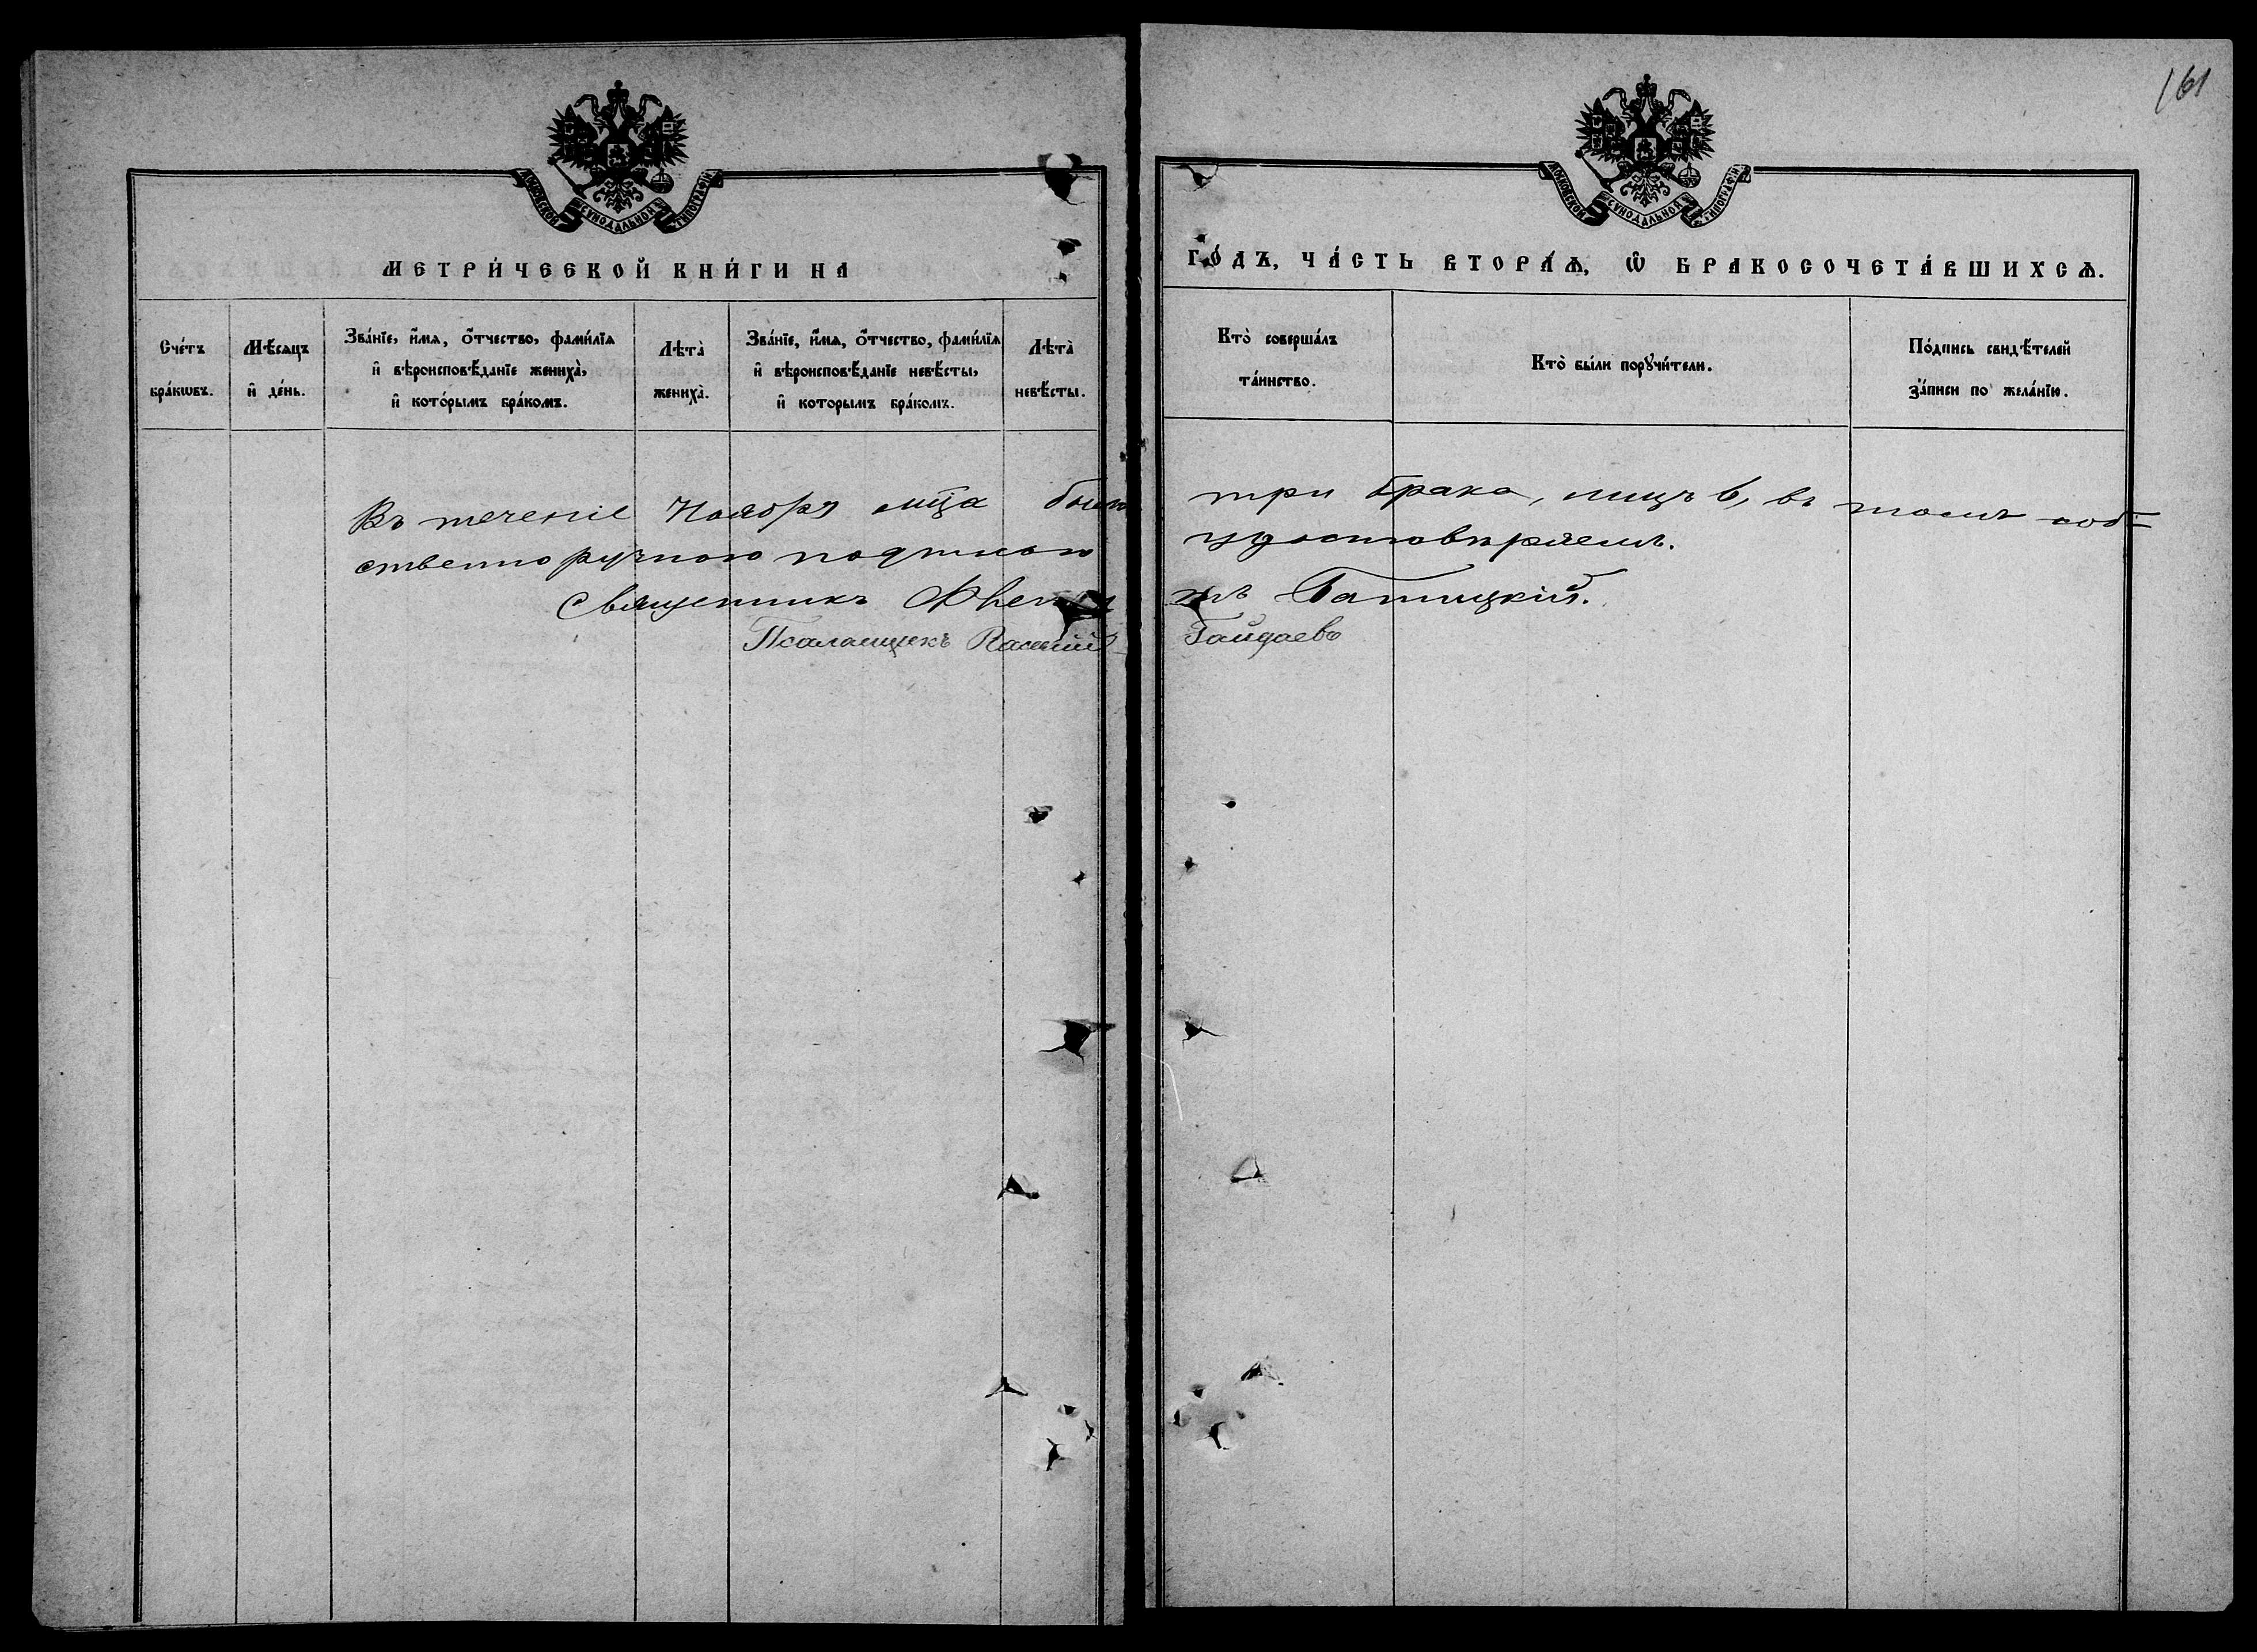 161
МОСКОВСКОЙ СѴНОДАЛЬНОЙ ТИПОГРАФІИ
МОСКОВСКОЙ СѴНОДАЛЬНОЙ ТИПОГРАФІИ
МЕТРИ́ЧЕСКОЙ КНИ́ГИ НА
ГО́ДЪ, ЧА́СТЬ ВТОРА́Ѧ, Ѽ БРАКОСОЧЕТА́ВШИХСѦ.
Сче́тъ
бра́кѡвъ.
Мѣ́сяцъ
и҆ де́нь.
Зва́нїе, и҆́мѧ, ѻ҆́тчество, фами́лїѧ
и҆ вѣроисповѣ́данїе жениха̀,
и҆ кото́рымъ бра́комъ.
Лѣта̀
жениха̀.
Зва́нїе, и҆́мѧ, ѻ҆́тчество, фами́лїѧ
и҆ вѣроисповѣ́данїе невѣ́сты,
и҆ которымъ бра́комъ.
Лѣта̀
невѣ́сты.
Кто̀ соверша́лъ
та́инство.
Кто̀ бы́ли порꙋчи́тели.
По́дпись свидѣ́телей
за́писи по жела́нїю.
Въ теченіе Ноября мца было три брака, лицъ 6, въ томъ соб=
ственноручною подписью удостовѣряемъ.
Священникъ Гатицкій.
Псаломщикъ Гайдаевъ